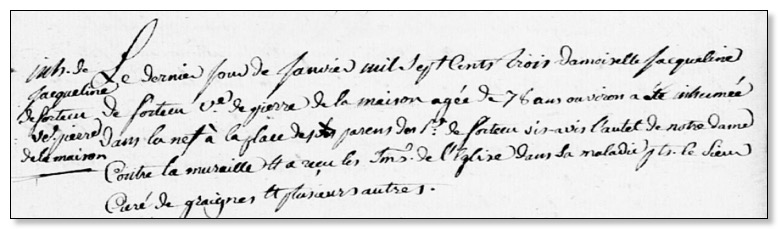 inh. de
Jacqueline
de fortecu
ve. pierre
de la maison
Le dernier jour de Janvier mil sept cents trois damoiselle Jacqueline
de fortecu ve. de pierre de la maison agée de 78 ans ou viron a ete inhumée
dans la nef à la place de ses parens des Srs. de fortecu vis-avis l'autel de notre dame
Contre la muraille Et a reçu les Smts. de l'Eglise dans sa maladie pts. le Sieur
Curé de graignes Et plusieurs autres.